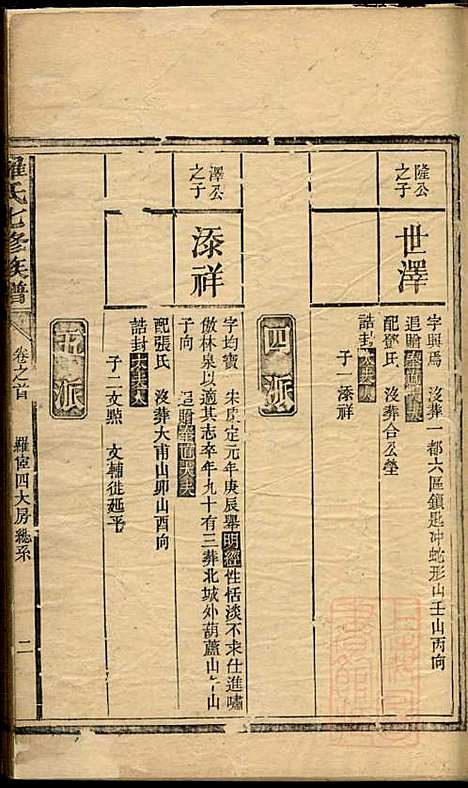 隆公之子
世澤
字與爲 沒葬一都六區鎖匙冲蛇形山壬山丙向
追贈奉直大夫
配鄧氏 沒葬合公塋
誥封太夫人
子一添祥
四派
澤公之子
添祥
字均寶 宋定元年庚辰舉明經性恬淡不求仕進嘯
傲林泉以適其志卒年九十有三葬北城外葫蘆山午山
子向 追贈奉直大夫
配張氏 沒葬大甫山卯山酉向
誥封太夫人
子二文㸃 文輔徙延平
五派
羅氏七修族譜
卷之首
羅倬四大房總系
二